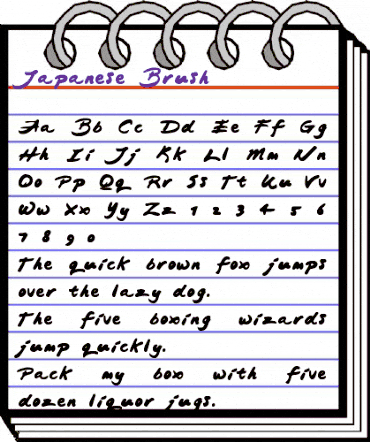 Japanese Brush
Aa Bb Cc Dd Ee Ff Gg
Hh Ii Jj Kk Ll Mm Nn
Oo Pp Qq Rr Ss Tt Uu Vv
Ww Xx Yy Zz 1 2 3 4 5 6
7 8 9 0
The quick brown fox jumps
over the lazy dog.
The five boxing wizards
jump quickly.
Pack my box with five
dozen liquor jugs.